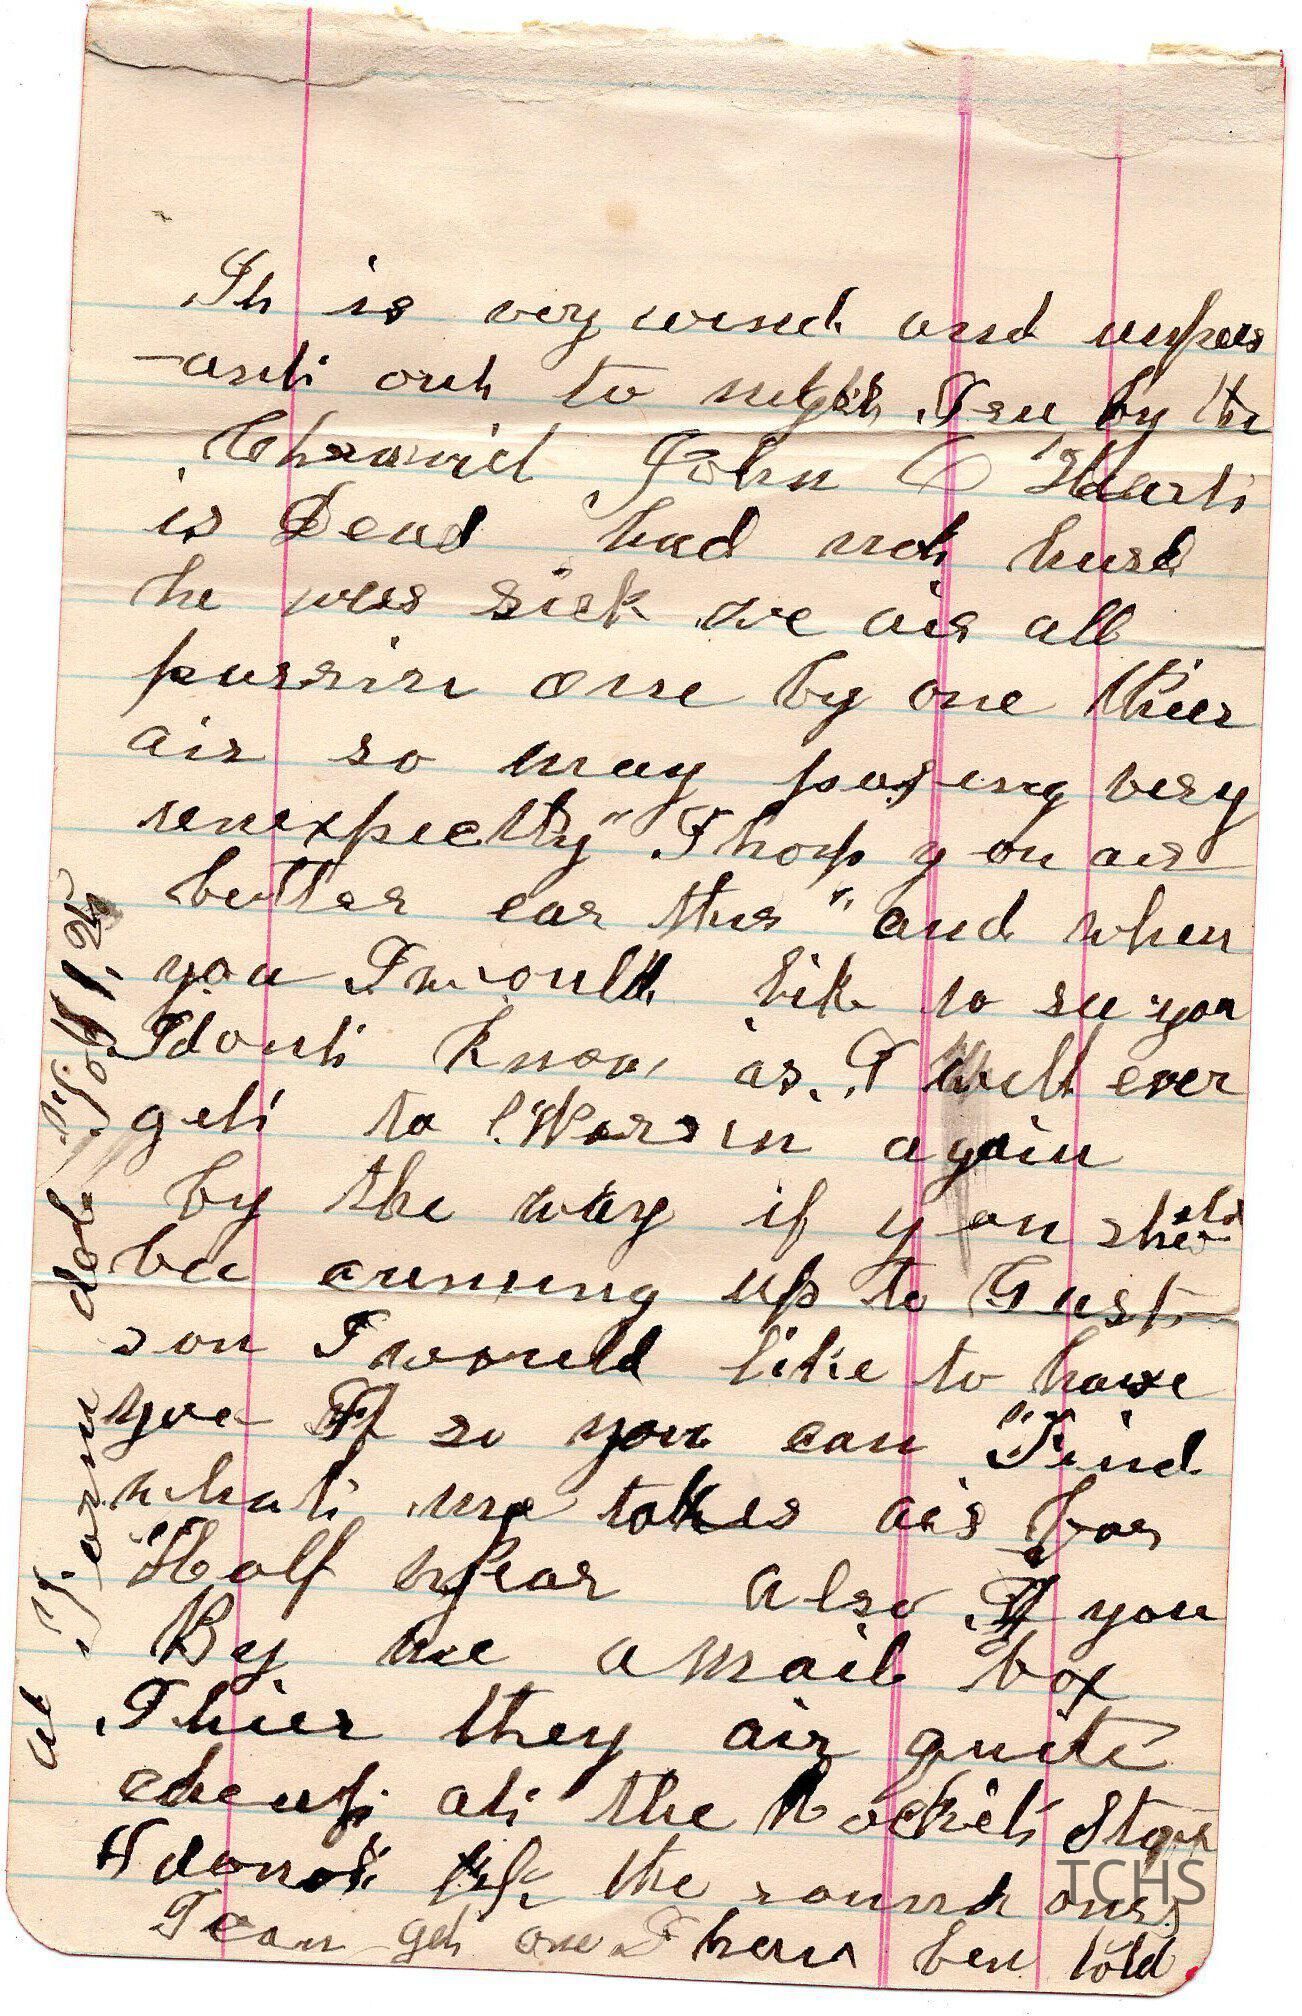 It is very wind and unpleas
-ant out to night I see by the
Chronicl John C Hart
is Dead had not hurd
he was sick we air all
passin one by one thier
air so many pasing very
unexpectly" I hop you air
better ear this " and when
you I would lik to see you
I dont know as I will ever
get to Warren again
by the way if you should
be cuming up to Gust
son I would like to have
you If so you can Find
what me takes air for
Half year also If you
By me a mail box
Thier they air quite
cheap at the Rockit Store
I donot lik the round ones
I can get one I have ben told
at Farm dol
TCHS